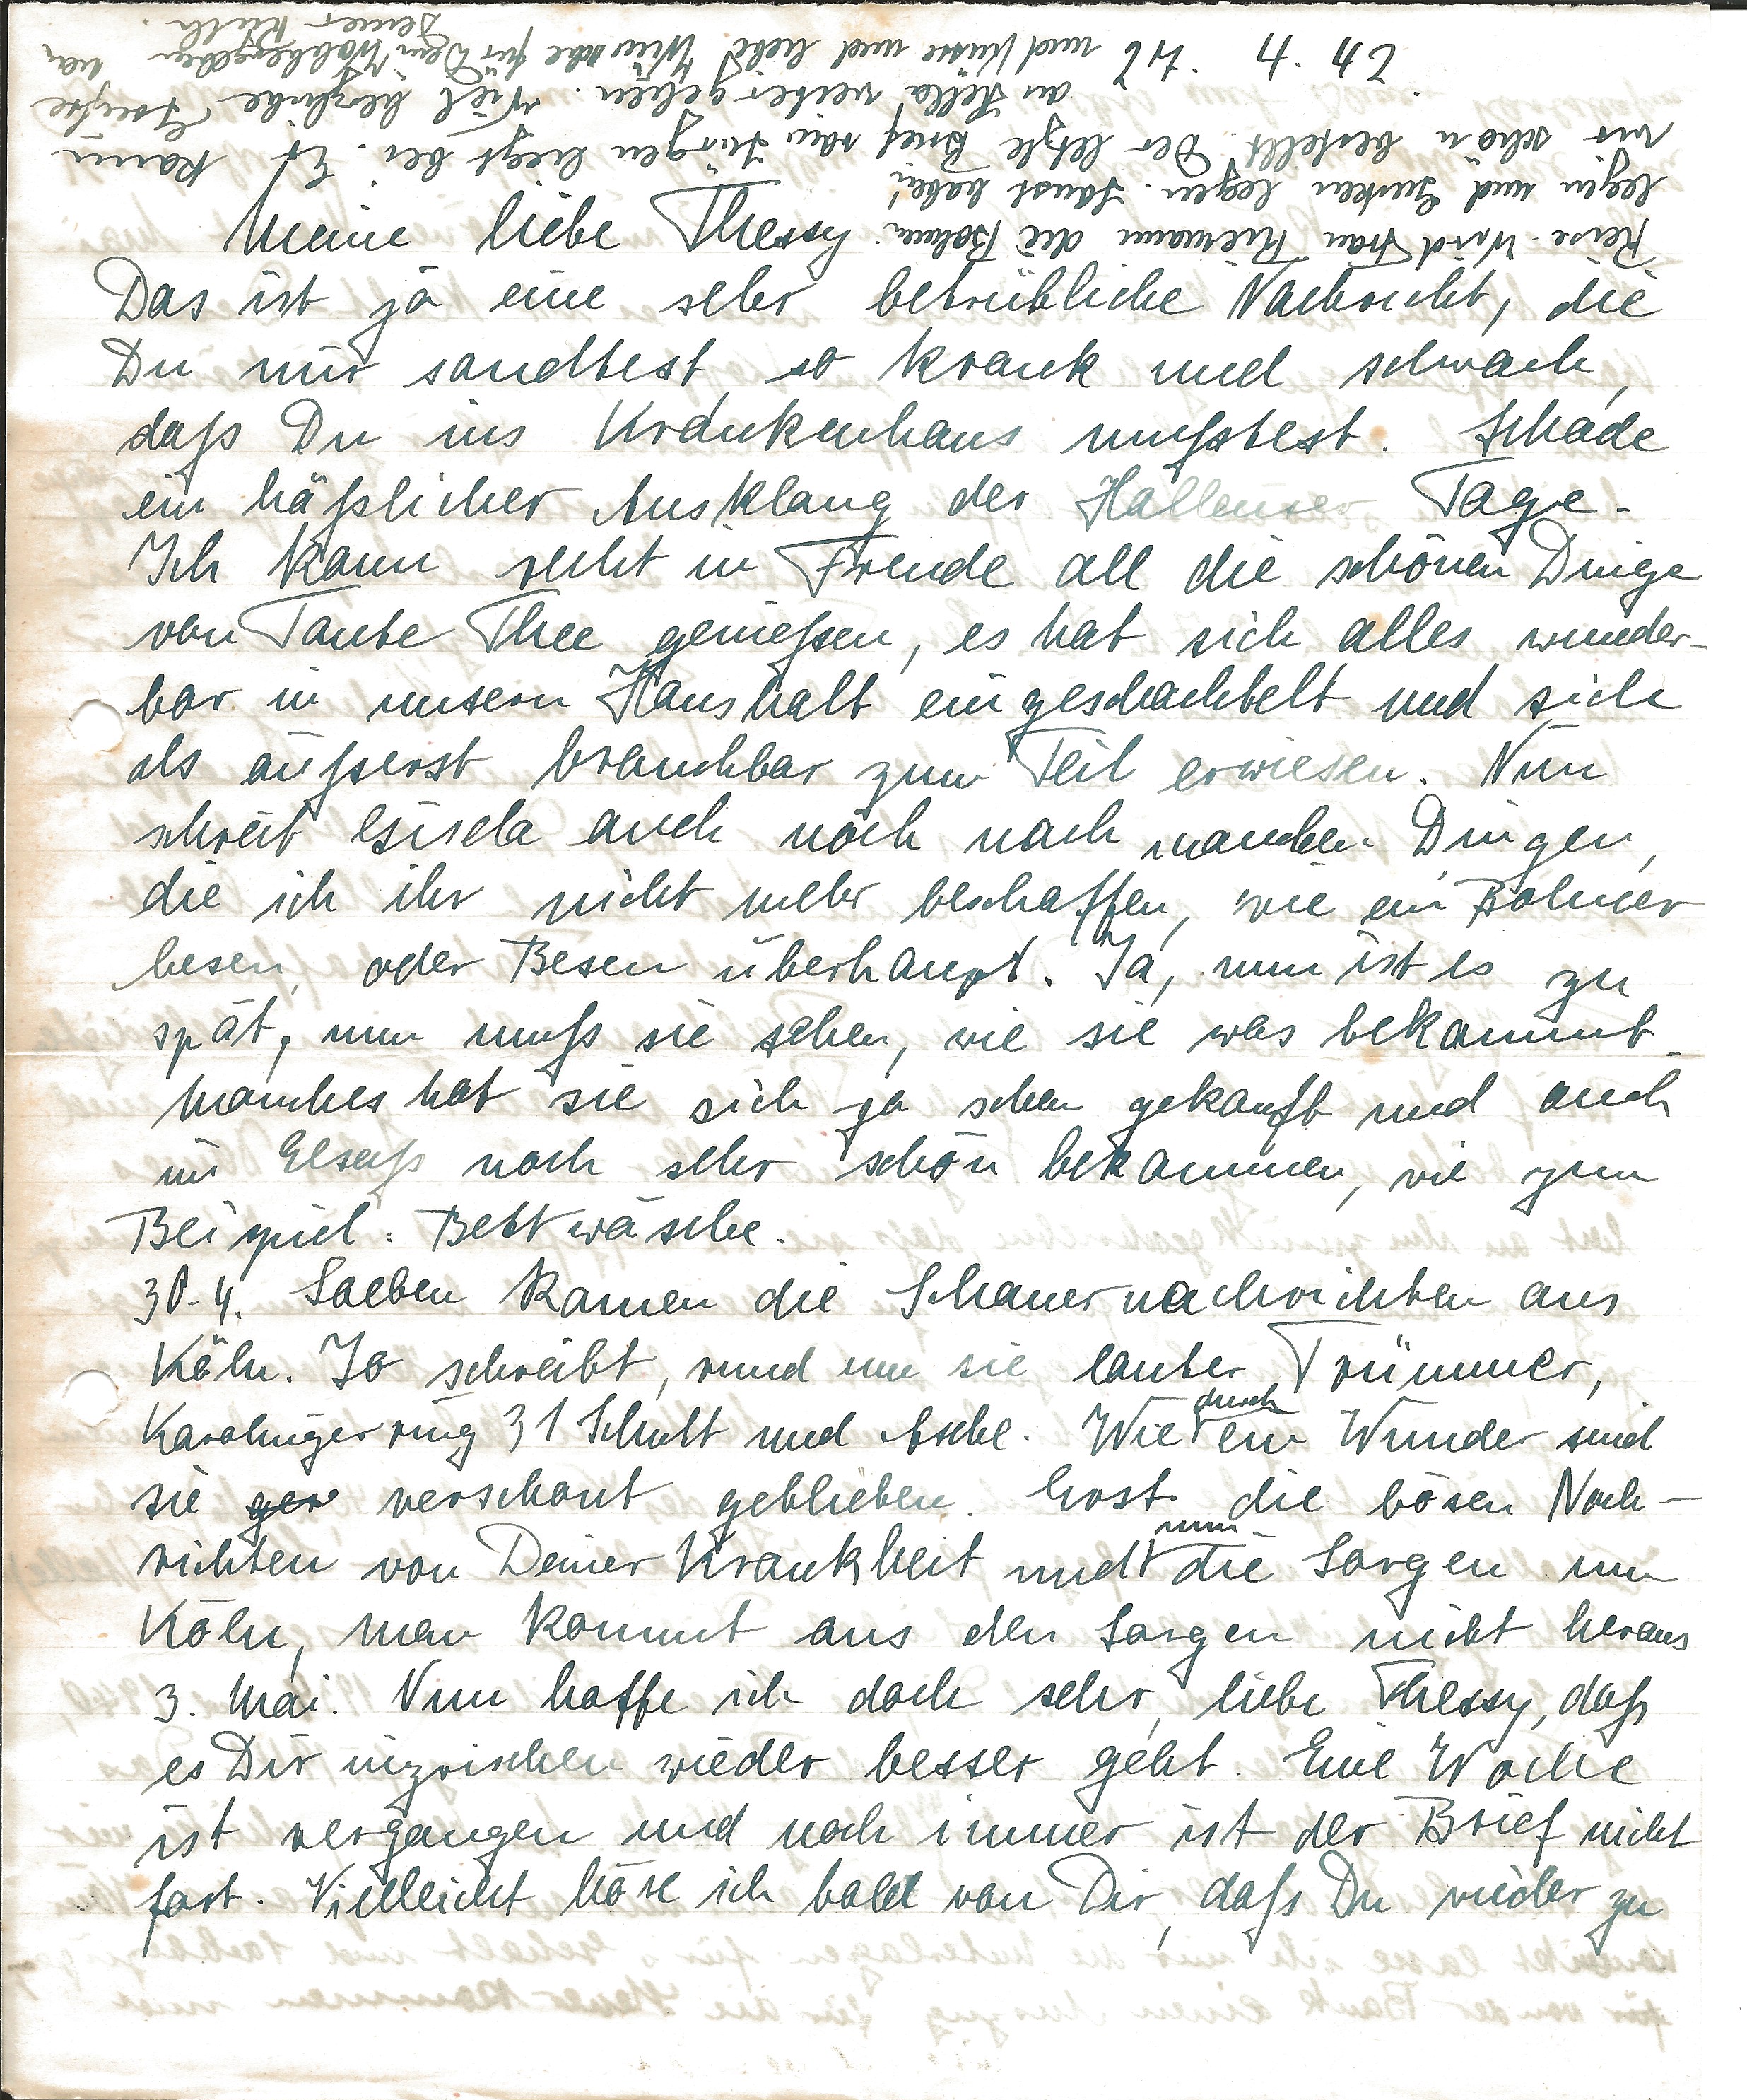 24. 4. 42.
Meine liebe Thessy
Das ist ja eine sehr betrübliche Nachricht, die
Du mir sandtest, so krank und schwach,
daß Du ins Krankenhaus mußtest. Schade
ein häßlicher Ausklang der Hallenser Tage.
Ich kann recht in Freude all die schönen Dinge
von Tante Thee genießen, es hat sich alles wunder-
bar in unsern Haushalt eingeschachtelt und sich
als äußerst brauchbar zum Teil erwiesen. Nun
schreit Gisela auch noch nach manchen Dingen,
die ich ihr nicht mehr beschaffen, wie ein Bohner
besen, oder Besen überhaupt. Ja, nun ist es zu
spät, nun muß sie sehen, wie sie was bekommt.
Manches hat sie sich ja schon gekauft und auch
im Elsaß noch sehr schön bekommen, wie zum
Beispiel: Bettwäsche.
30.4. Soeben kamen die Schauernachrichten aus
Köln. Jo schreibt, rund um sie lauter Trümmer,
Karolingerring 31 Schutt und Asche. Wie durch ein Wunder sind
sie ger verschont geblieben. Erst die bösen Nach-
richten von Deiner Krankheit und nun die Sorgen um
Köln, man kommt aus den Sorgen nicht heraus
3. Mai. Nun hoffe ich doch sehr, liebe Thessy, daß
es Dir inzwischen wieder besser geht. Eine Woche
ist vergangen und noch immer ist der Brief nicht
fort. Vielleicht höre ich bald von Dir, daß Du wieder zu
Reise. Wird Frau Niemann die Bohnen
legen und Gurken legen. Sonst haben
wir schön bestellt. Der letzte Brief von Jürgen liegt bei. Er kann
an Hella weiter gehen. Viel herzliche Grüße
und Küsse und liebe Wünsche für Dein Wohlergehen von
Deiner Ruth.